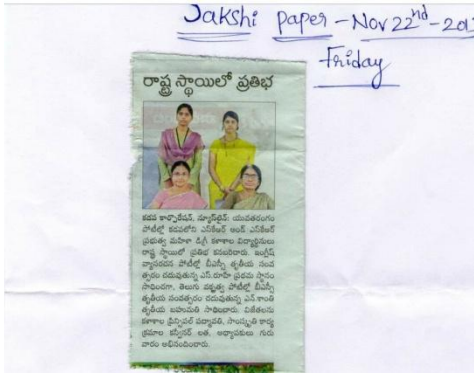 Sakshi paper - Nov 22nd - 201
Friday
రాష్ట్ర స్థాయిలో ప్రతిభ
కడప కార్పొరేషన్, న్యూస్‌లైన్: యువతరంగం
పోటీల్లో కడపలోని ఎస్‌కేఆర్ అండ్ ఎస్‌కేఆర్
ప్రభుత్వ మహిళా డిగ్రీ కళాశాల విద్యార్థినులు
రాష్ట్ర స్థాయిలో ప్రతిభ కనబరిచారు. ఇంగ్లీష్
వ్యాసరచన పోటీల్లో బీఎస్సీ తృతీయ సంవ
త్సరం చదువుతున్న ఎస్.రూహి ప్రథమ స్థానం
సాధించగా, తెలుగు వక్తృత్వ పోటీల్లో బీఎస్సీ
తృతీయ సంవత్సరం చదువుతున్న ఎన్.శాంతి
తృతీయ బహుమతి సాధించారు. విజేతలను
కళాశాల ప్రిన్సిపల్ పద్మావతి, సాంస్కృతి కార్య
క్రమాల కన్వీనర్ లత, అధ్యాపకులు గురు
వారం అభినందించారు.